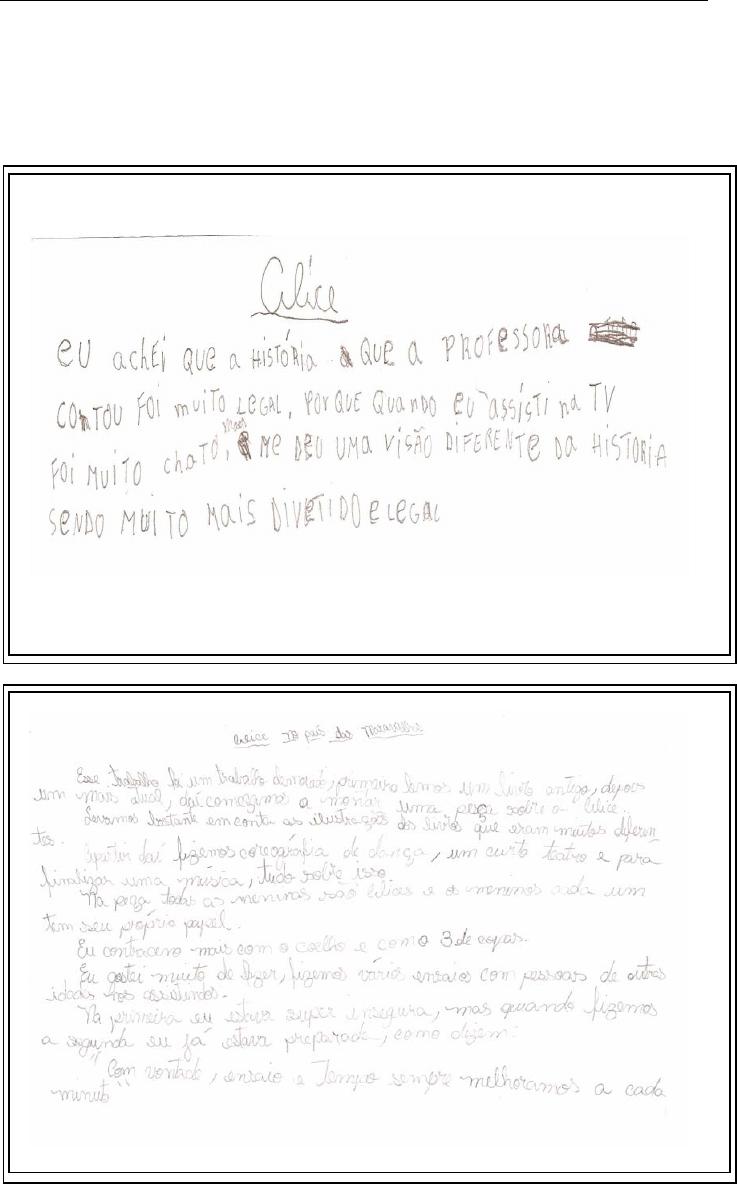 Alice
EU ACHEI QUE A HISTÓRIA QUE A PROFESSORA
CONTOU FOI MUITO LEGAL, PORQUE QUANDO EU ASSÍSTI NA TV
FOI MUITO CHATO, mas ME DEU UMA VISÃO DIFERENTE DA HISTORIA
SENDO MUITO MAIS DIVETIDO E LEGAL
Alice no país das Maravilhas
Esse trabalho foi um trabalho demorado, primeiro lemos um livro antigo, depois
um mais atual, daí começamos a montar uma peça sobre a Alice.
Levamos bastante em conta as ilustrações dos livros que eram muitos diferen-
tes.
Apartir daí fizemos coreográfia de dança, um curto teatro e para
finalizar uma música, tudo sobre isso.
Na peça todas as meninas são Alices e os meninos cada um
tem seu próprio papel.
Eu contraceno mais com o coelho e como 3 de copas.
Eu gostei muito de fazer, fizemos vários ensaios com pessoas de outras
idades nos assistindo.
Na primeira eu estava super insegura, mas quando fizemos
a segunda eu já estava preparada, como dizem:
"Com vontade, ensaio e Tempo sempre melhoramos a cada
minuto"